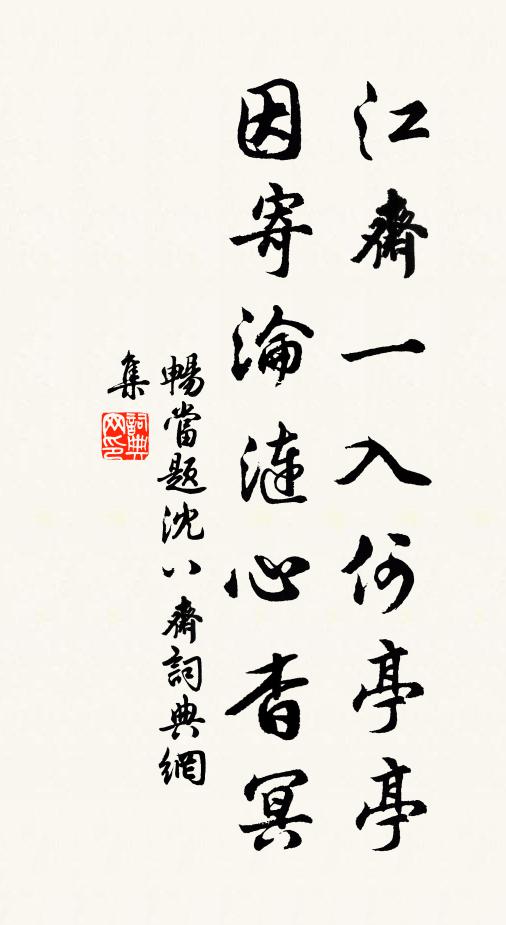 江齋一入何亭亭
因寄淪漣心杳冥
暢當題沈八齋詞典網
集
詞典网印